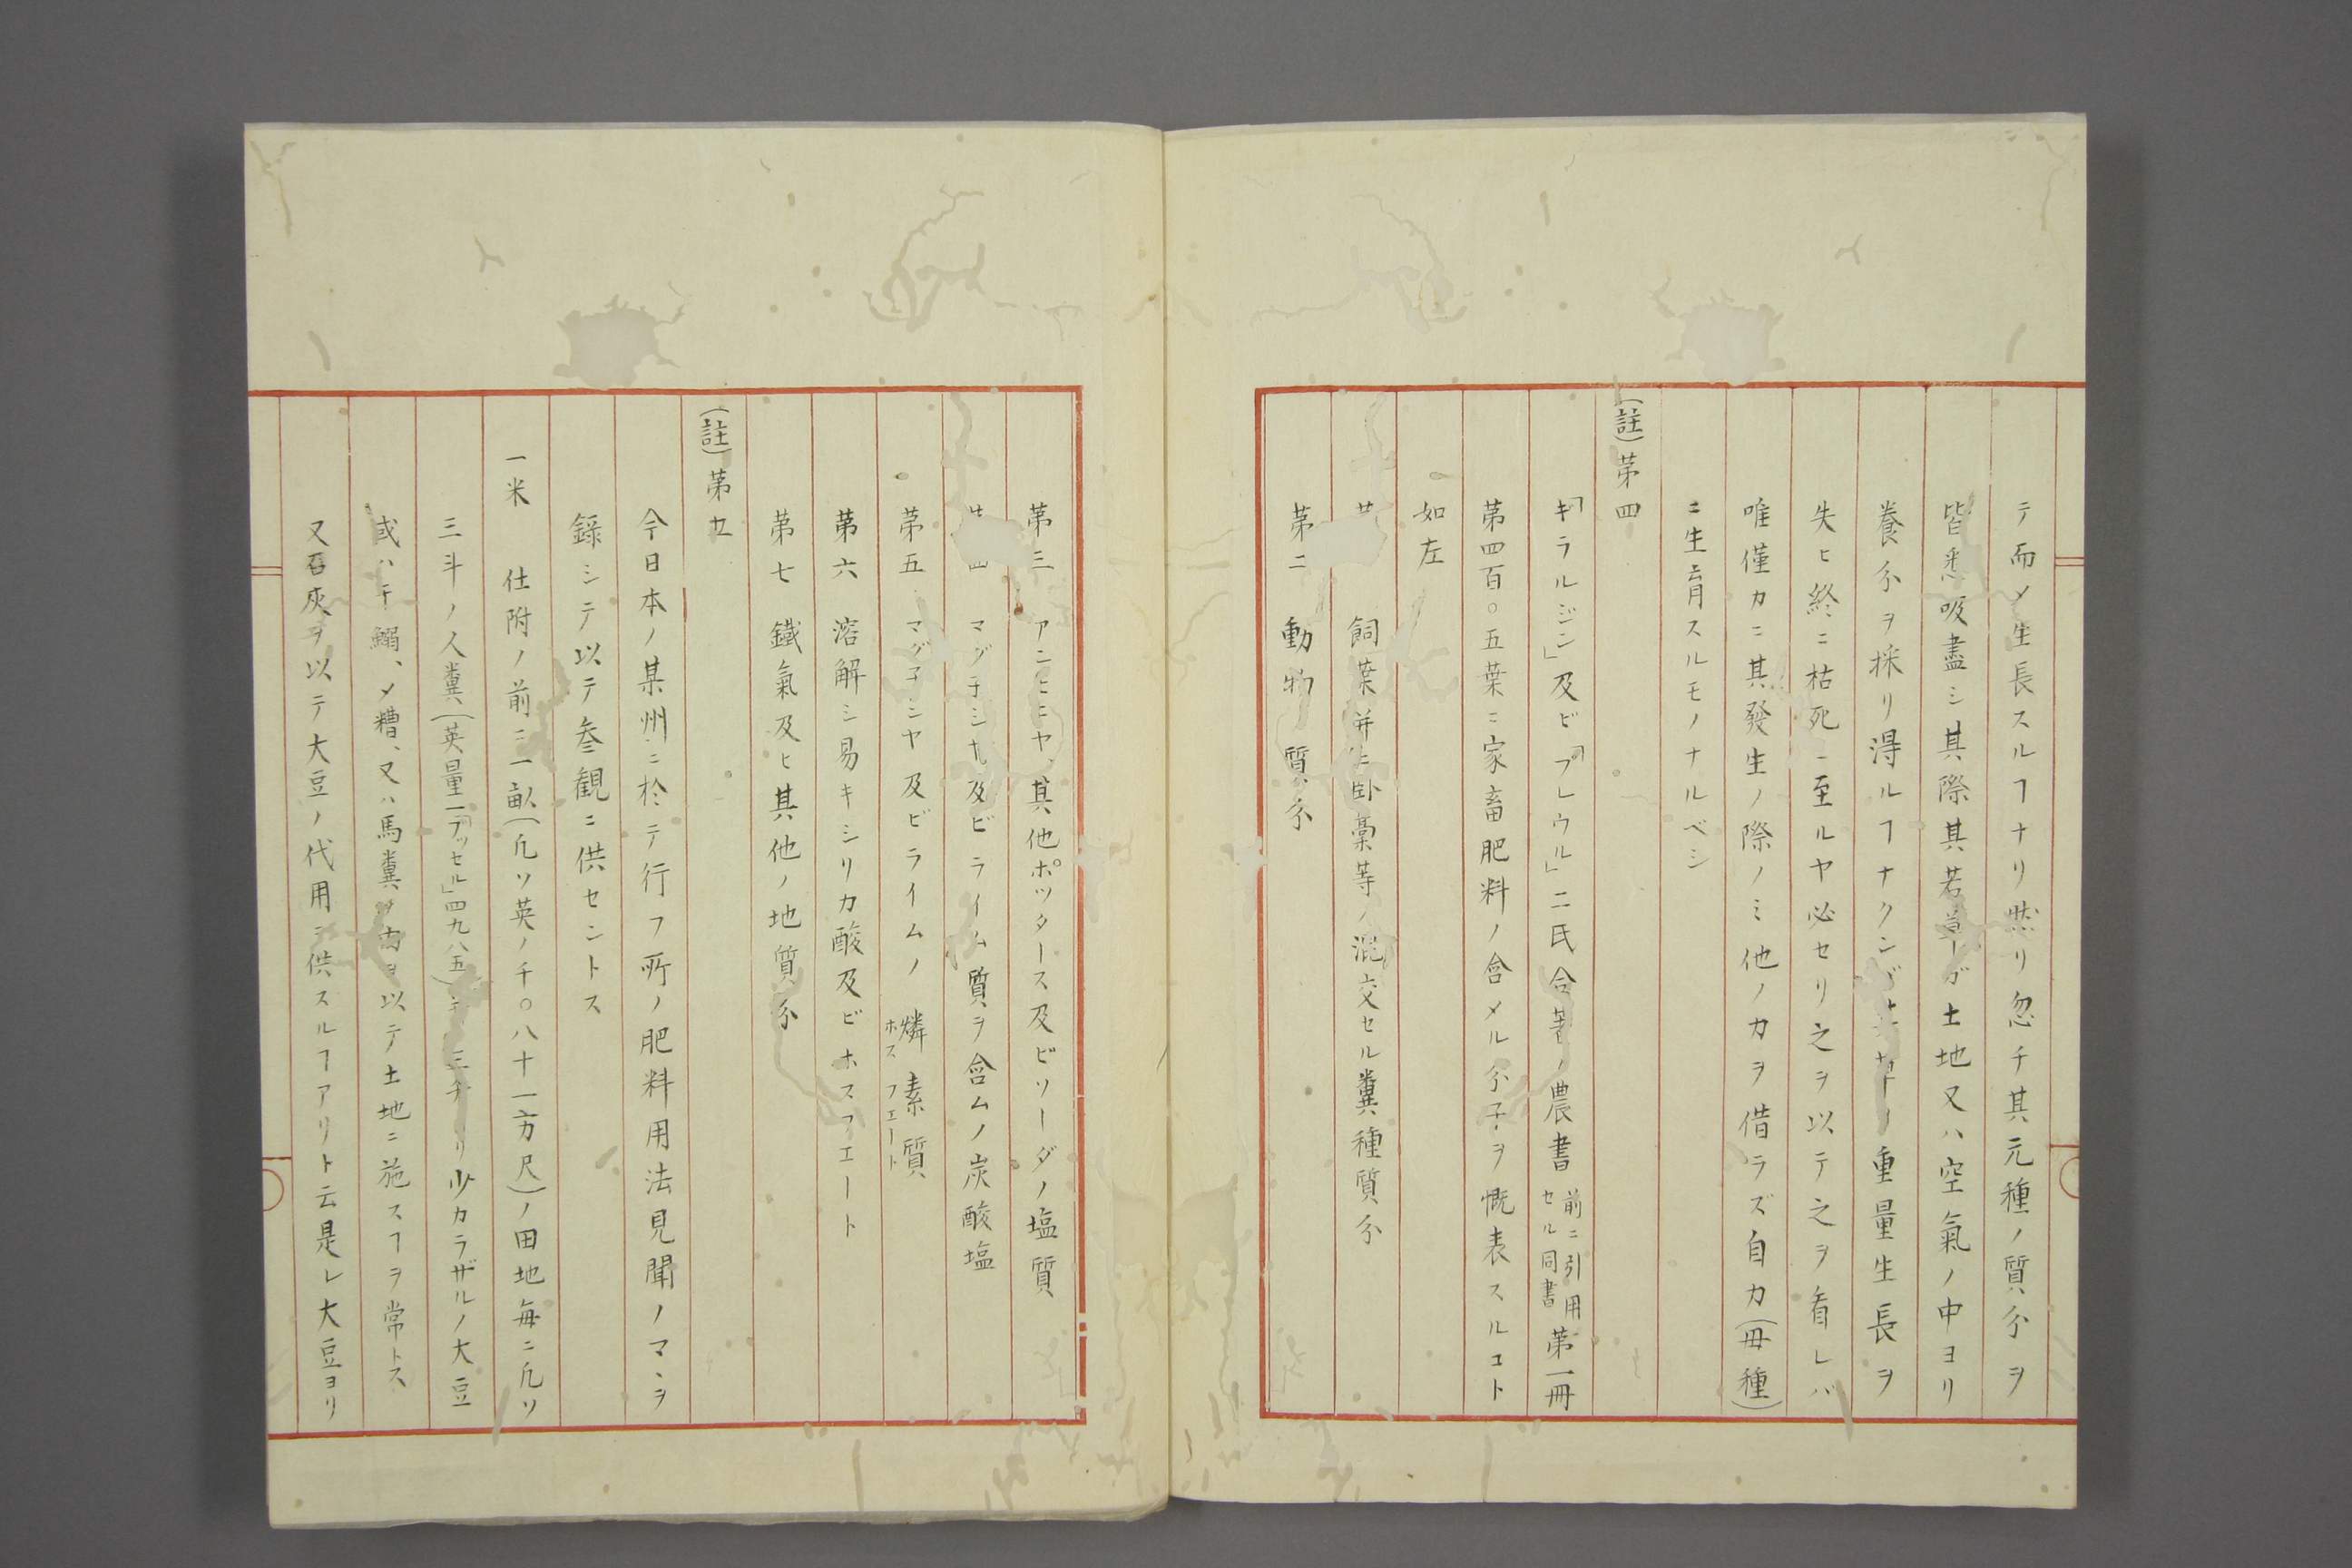 テ而〆生長スルヿナリ然リ忽チ其元種ノ質分ヲ
皆悉吸盡シ其際其若草ガ土地又ハ空氣ノ中ヨリ
養分ヲ採リ得ルヿナクンバ ノ重量生長ヲ
失ヒ終ニ枯死ニ至ルヤ必セリ之ヲ以テ之ヲ看レバ
唯僅カニ其發生ノ際ノミ他ノカヲ借ラズ自カ(母種)
ニ生育スルモノナルベシ
(註)第四
「ギラルジン」及ビ「プレウル」二氏合著ノ農書前ニ引用セル同書第一冊
第四百〇五葉ニ家畜肥料ノ含メル分子ヲ慨表スルコト
如左
飼葉并ニ臥藁等ノ混交セル糞種質分
第二 動物質分
第三 アンモニヤ、其他ポツタース及ビソーダノ塩質
マグ子シヤ及ビライム質ヲ含ムノ炭酸塩
第五 マグ子シヤ及ビライムノ燐素質ホスフエート
第六 溶解シ易キシリカ酸及ビホスフエート
第七 鐵氣及ヒ其他ノ地質分
(註)第五
今日本ノ某州ニ於テ行フ所ノ肥料用法見聞ノマヽヲ
錄シテ以テ參観ニ供セントス
一米 仕附ノ前ニ一畝(凡ソ英ノ千〇八十一方尺)ノ田地毎ニ凡ソ
三斗ノ人糞(英量一「ブッセル」四九八五) 少カラザルノ大豆
或ハ干鰯、〆糟、又ハ馬糞 ヲ以テ土地ニ施スヿヲ常トス
又石灰ヲ以テ大豆ノ代用ニ供スルヿアリト云是レ大豆ヨリ